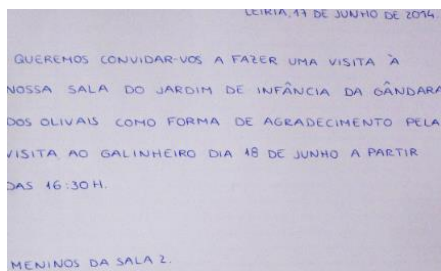 LEIRIA, 17 DE JUNHO DE 2014.
QUEREMOS CONVIDAR-VOS A FAZER UMA VISITA À
NOSSA SALA DO JARDIM DE INFÂNCIA DA GÂNDARA
DOS OLIVAIS COMO FORMA DE AGRADECIMENTO PELA
VISITA AO GALINHEIRO DIA 18 DE JUNHO A PARTIR
DAS 16:30H.
MENINOS DA SALA 2.